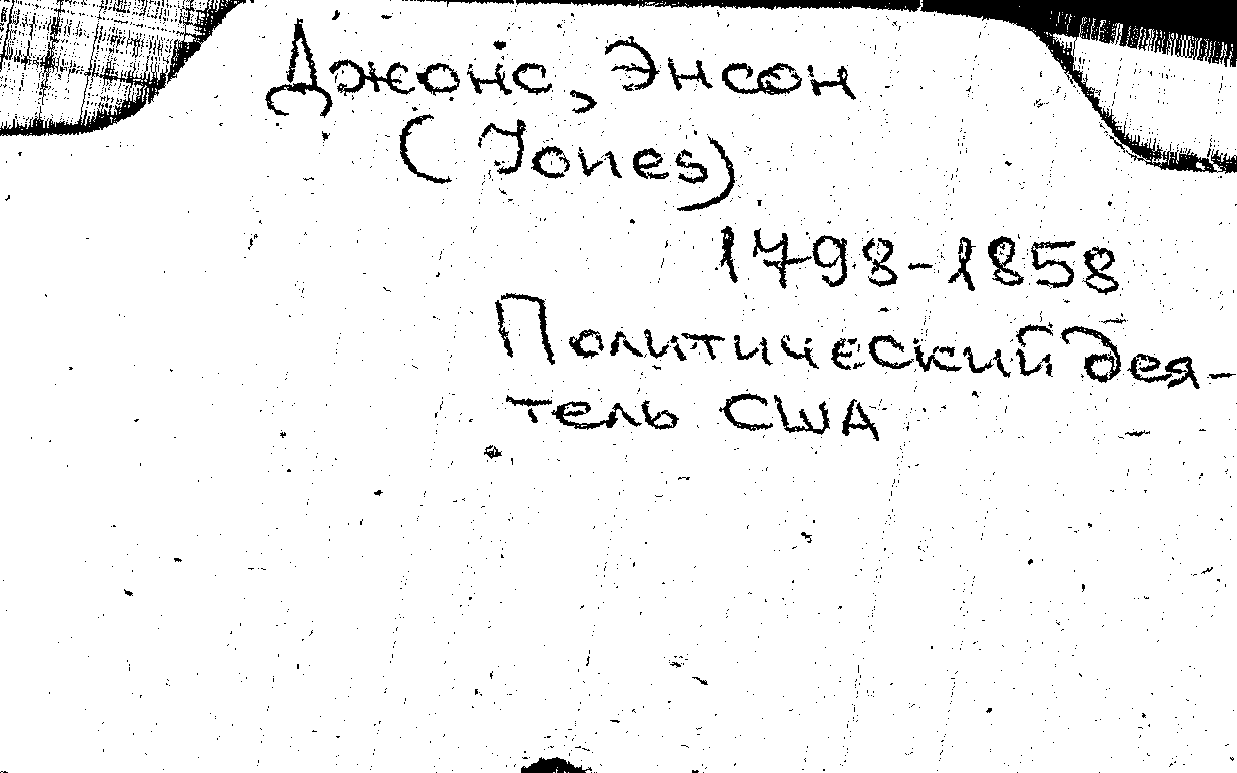 Джонс, Энсон
(Jones)
1798-1858
Политический дея-
тель США